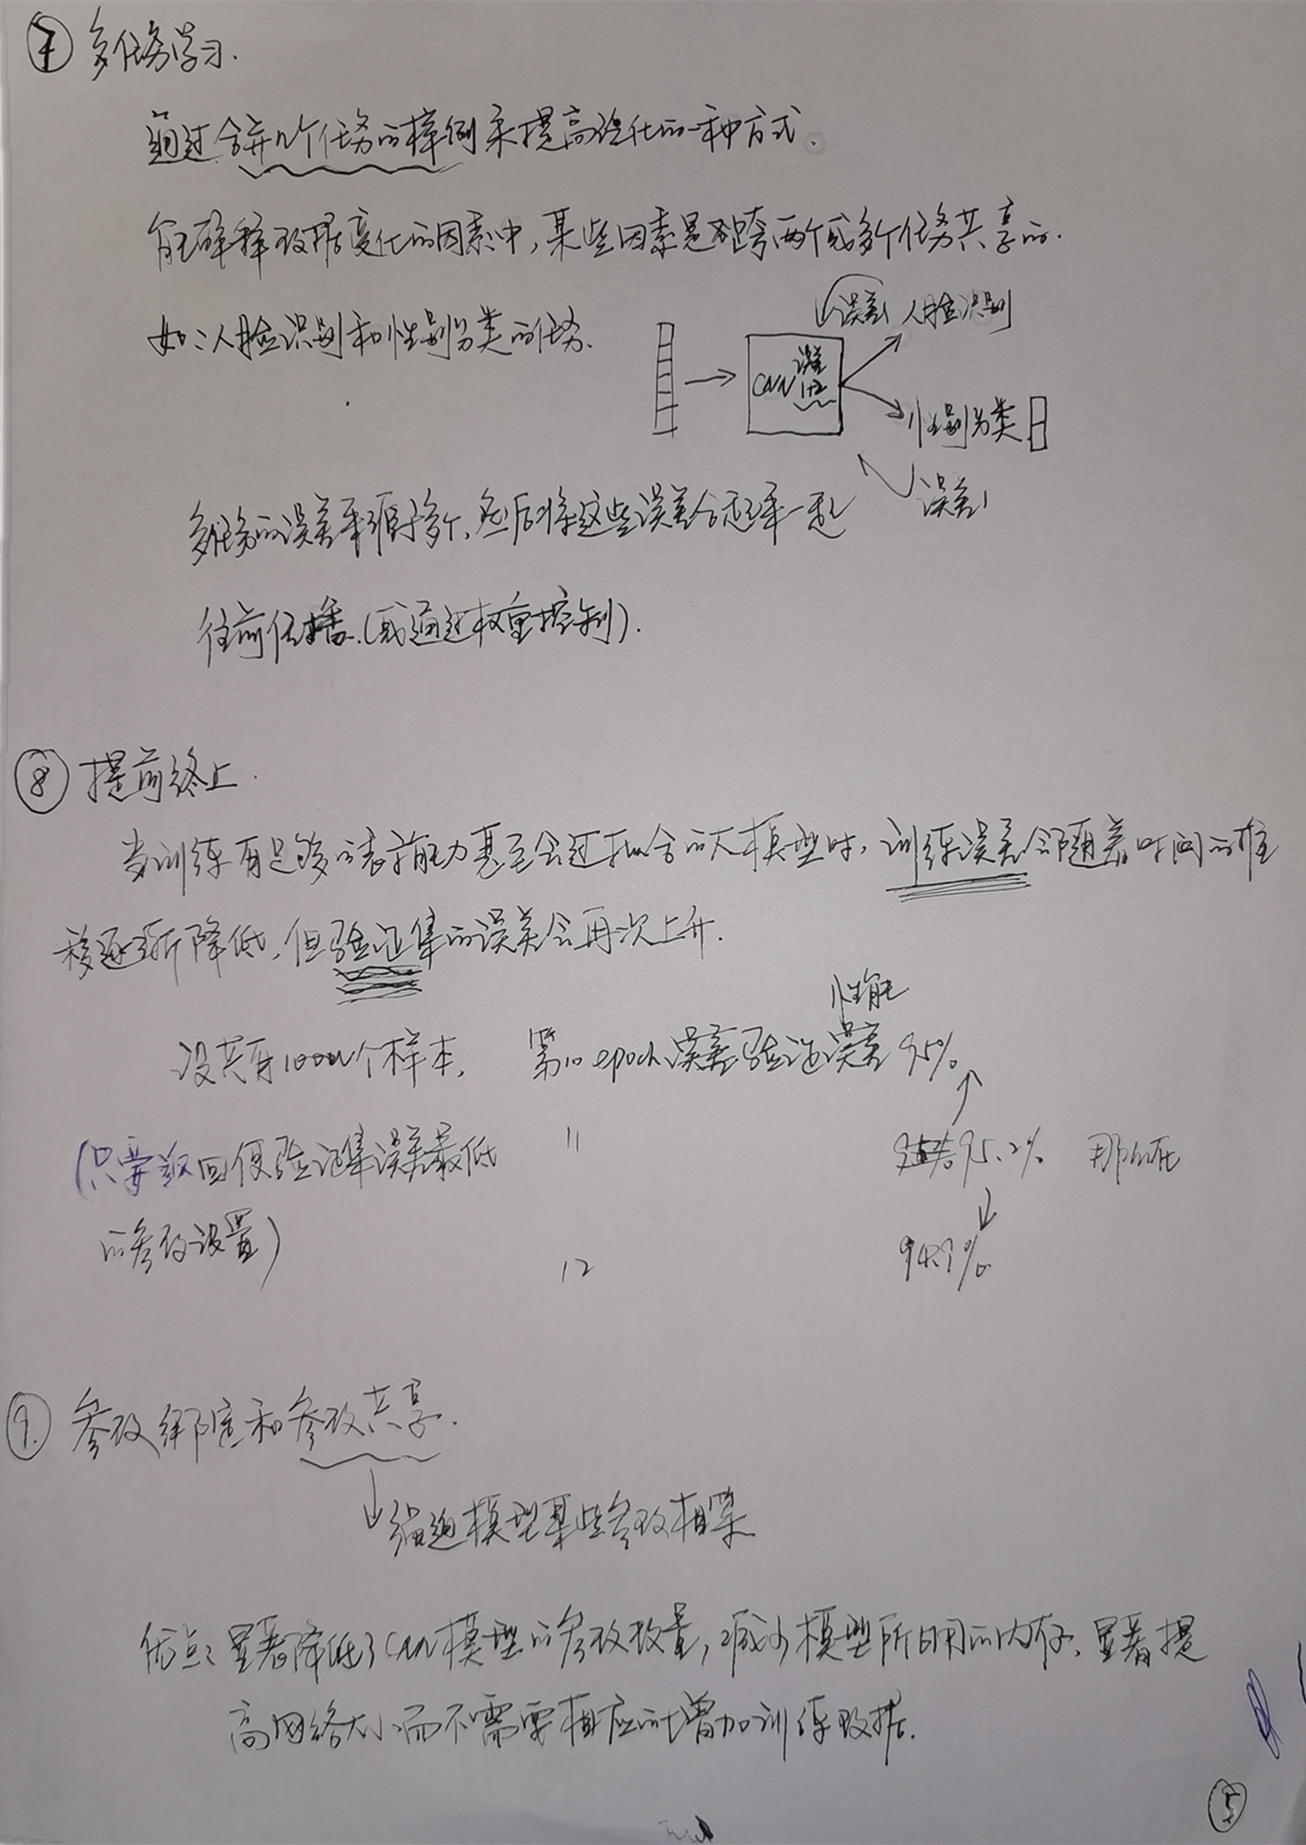 ⑦ 多任务学习.
通过合并几个任务的样例来提高泛化的一种方式.
能解释数据变化的因素中,某些因素是跨两个或多个任务共享的.
误差1 人脸识别
如:人脸识别和性别分类的任务.
CNN 误差1+2
性别分类
误差
多任务的误差来源于多个,然后将这些误差合起来一起
往前传播.(或通过权重控制).
⑧ 提前终止.
当训练有足够的表示能力甚至会过拟合的大模型时,训练误差会随着时间的推
移逐渐降低,但验证集的误差会再次上升.
性能
设共有10000个样本, 第10 epoch 误差 验证误差 95%
(只要返回使验证集误差最低 11 95.2%
的参数设置)
12 94.9%
⑨ 参数绑定和参数共享.
强迫模型某些参数相等
优点:显著降低了CNN模型的参数数量,减少模型所占用的内存,显著提
高网络大小而不需要相应的增加训练数据.
⑤